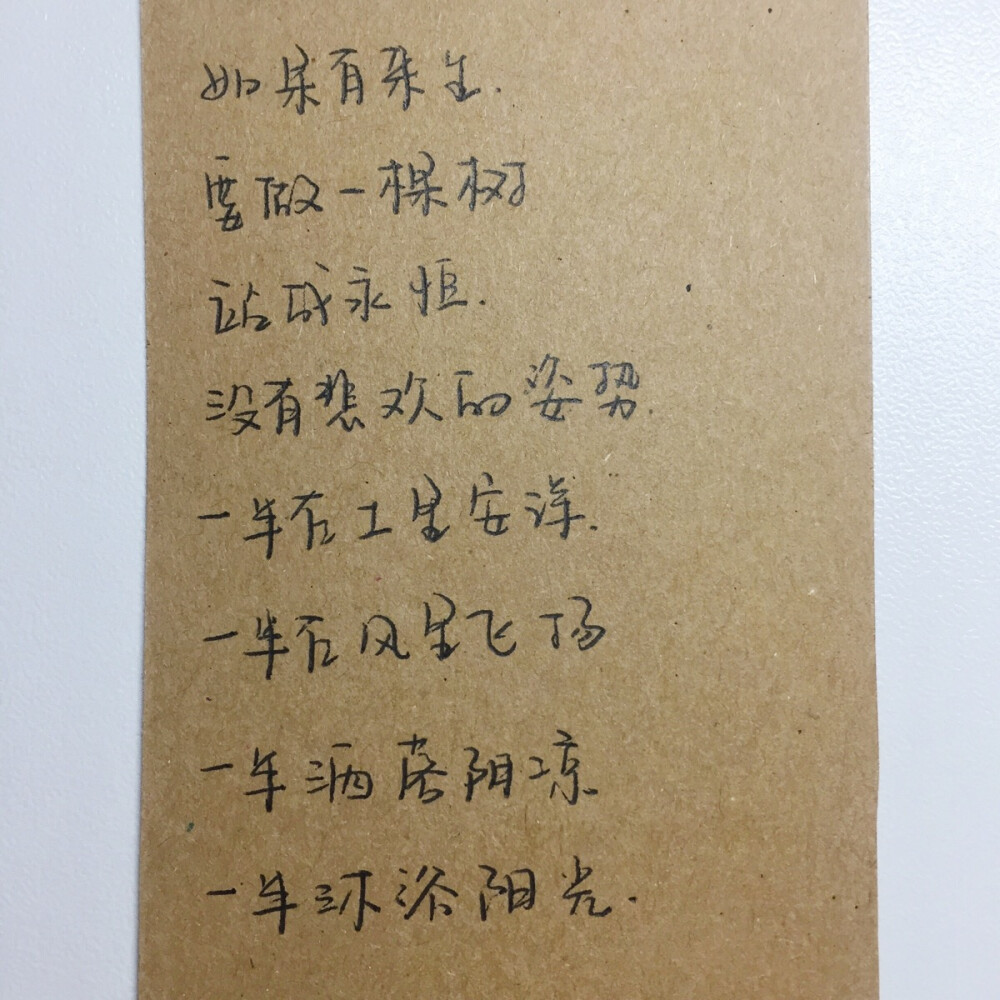 如果有来生.
要做一棵树
站成永恒.
没有悲欢的姿势.
一半在土里安洋.
一半在风里飞扬
一半洒落阴凉.
一半沐浴阳光.